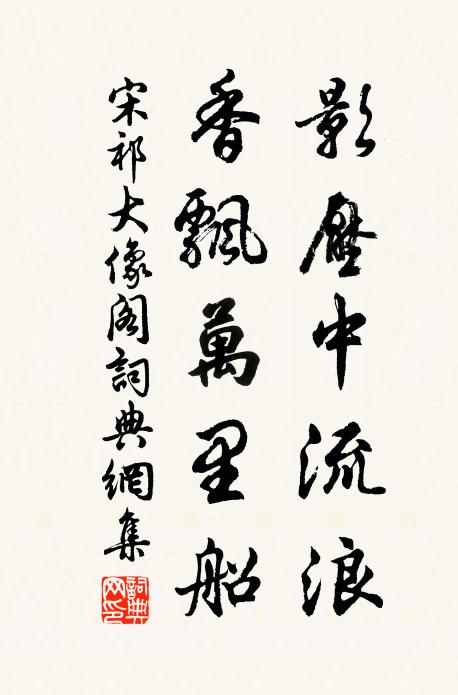 影壓中流浪
香飄萬里船
宋祁大像阁詞典網集
詞典网印